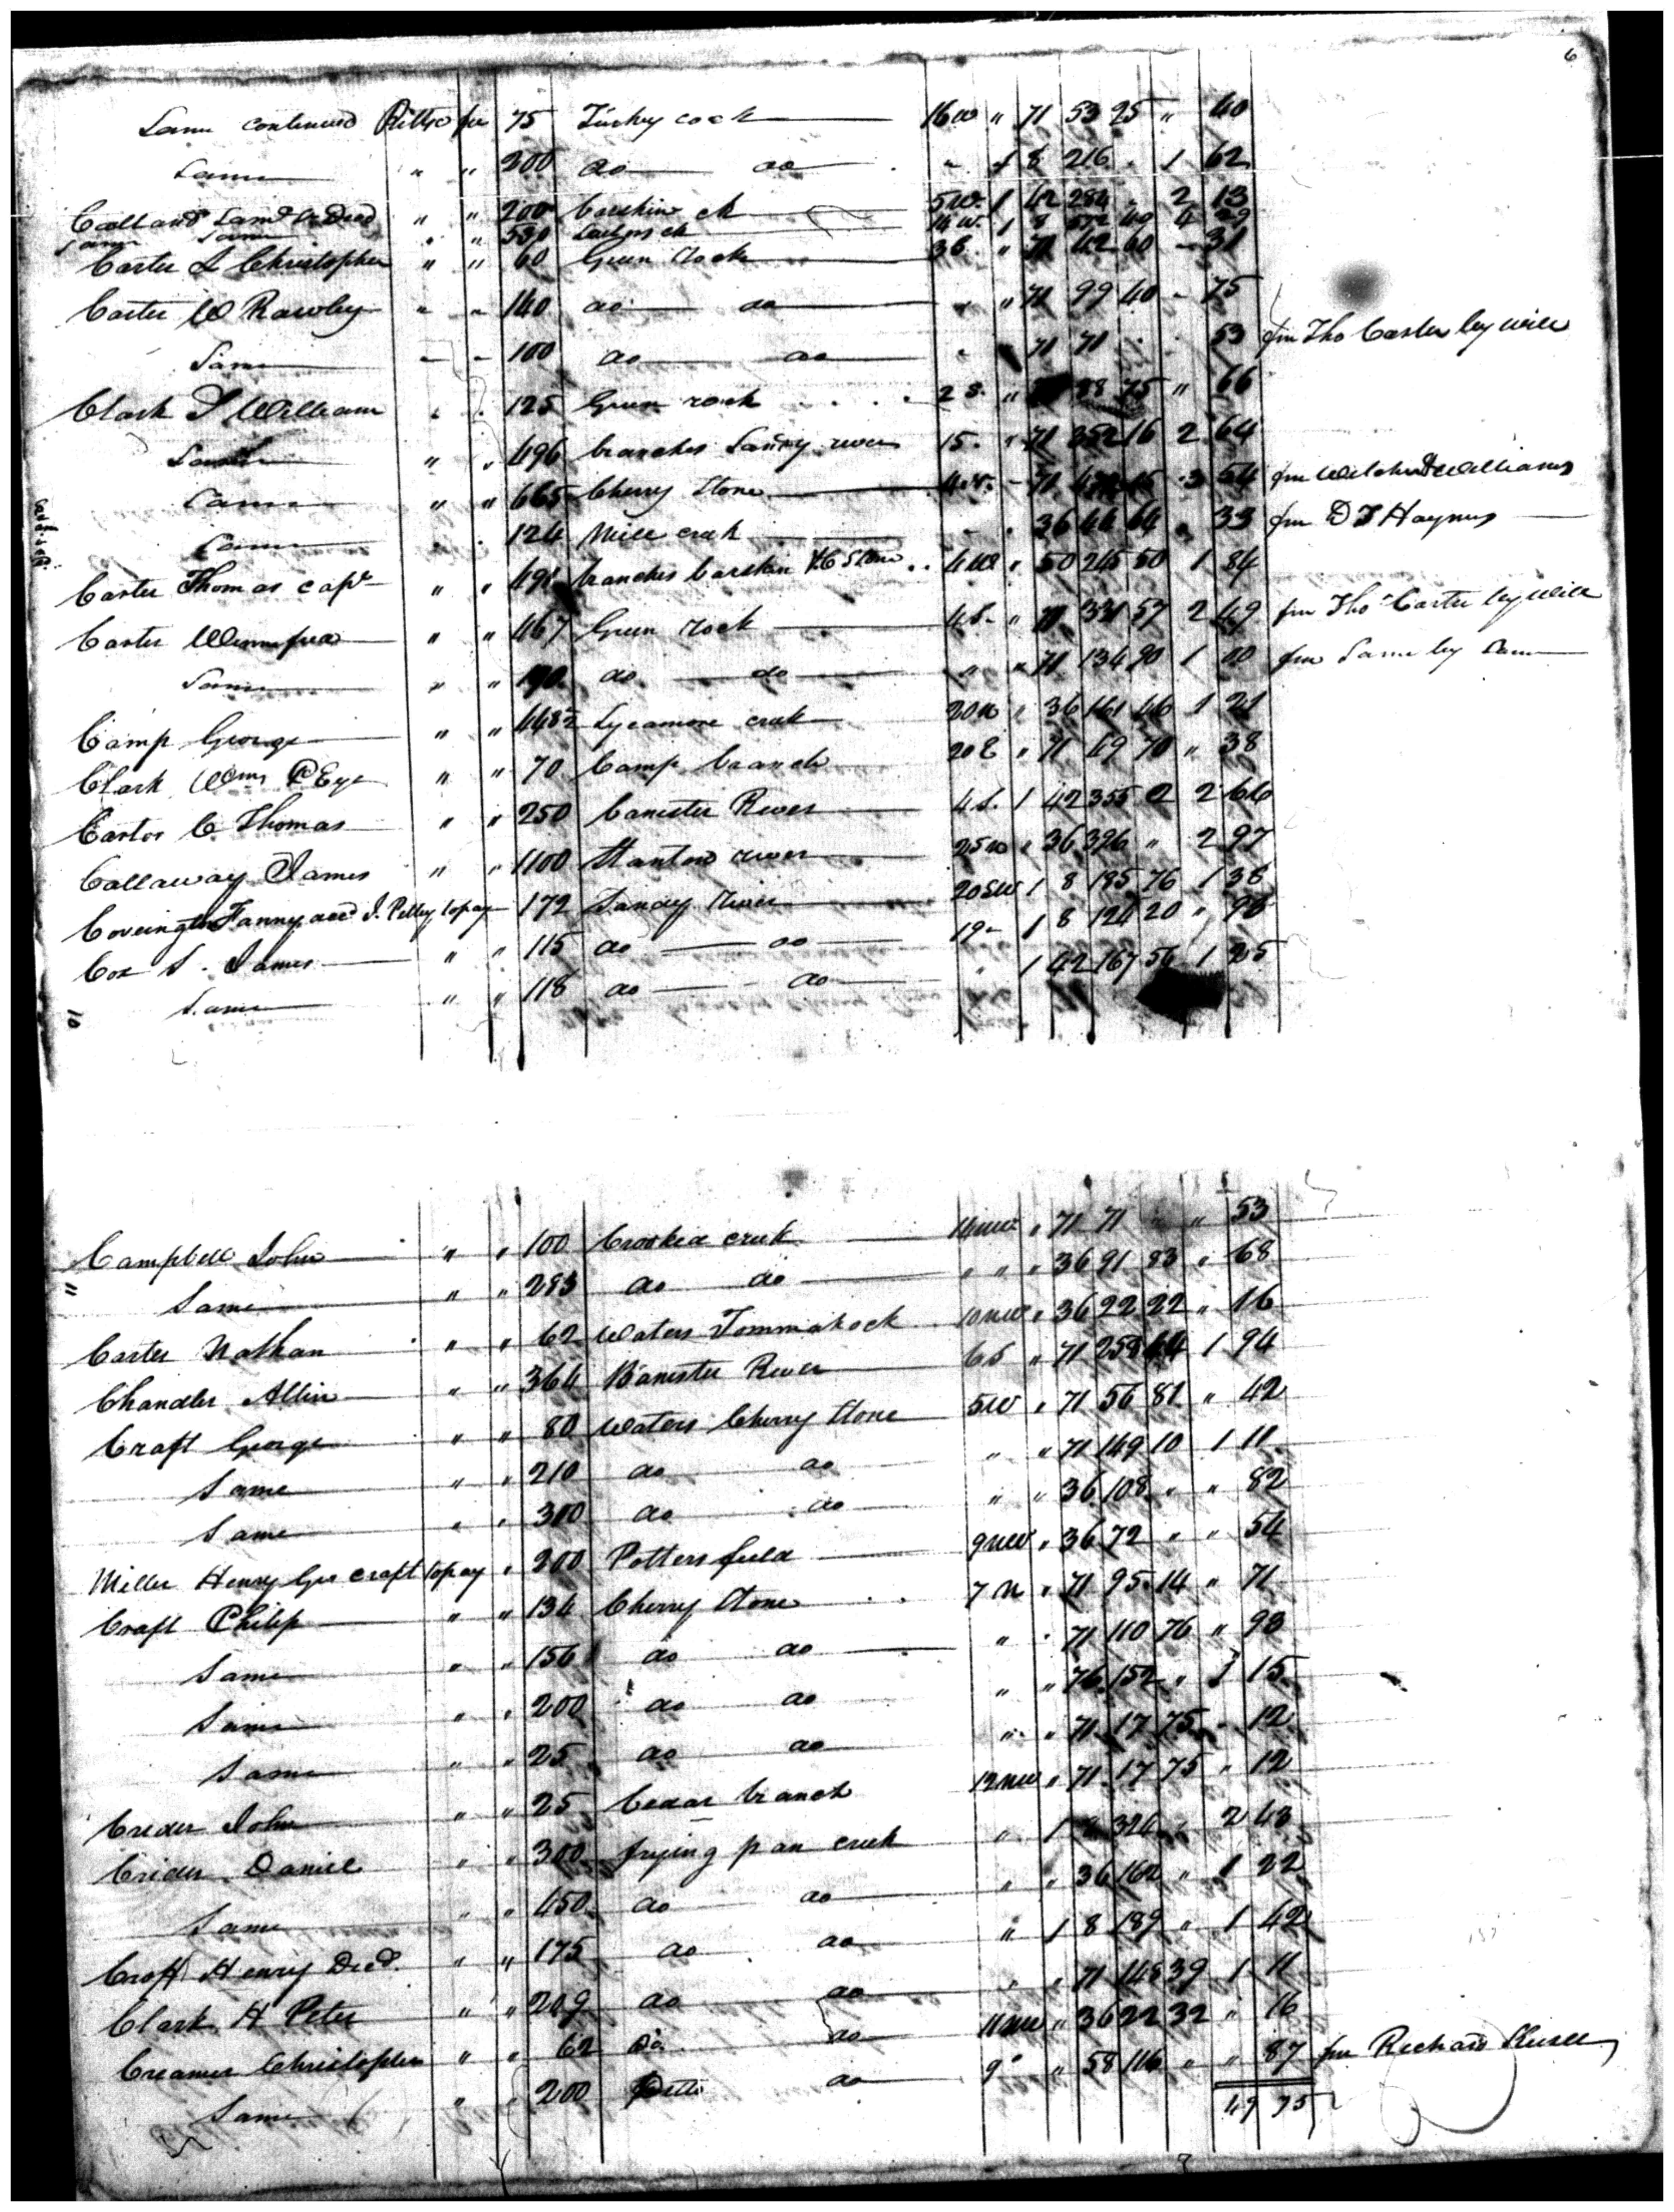 6
Same continued Pittso fee 75 Turkey cock 16 W " 71 53 25 " 40
Same " " 200 do do " 1 8 216 " 1 62
Calland Saml Decd " " 200 ck 5 W 1 42 284 " 2 13
Same Same " " 530 ck 14 W 1 8 572 40 4 29
Carter J Christopher " " 60 Green Rock 3 S " 71 42 60 " 31
Carter W Rawley " " 140 do do " " 71 99 40 " 75
Same " " 100 do do " 71 71 " " 53 fm Tho Carter by will
Clark T William " " 125 Green rock 2 S " 88 75 " 66
Same " " 496 branches Sandy river 15 " 71 352 16 2 64
Same " " 665 Cherry Stone 4 " 71 3 54 fm Williams
Same " " 124 Mill creek " " 36 44 64 " 33 fm D T Haynes
Carter Thomas capt " " 491 branches 4 W " 50 245 50 1 84
Carter Winnifred " " 467 Green Rock 4 S " 71 331 57 2 49 fm Tho Carter by will
Same " " 190 do do " " 71 134 90 1 00 fm Same by Same
Camp George " " 448½ Sycamore creek 20 W " 36 161 46 1 21
Clark Wm " " 70 Camp branch 20 E " 71 49 70 " 38
Carter C. Thomas " " 250 Banister River 4 S. 1 42 355 2 2 66
Callaway James " " 1100 Stanton river 25 W " 36 396 " 2 97
Covington Fanny decd J. Pelley to pay 172 Sandy River 20 SW 1 8 185 76 1 38
Cox S. James " " 115 do do 19 " 1 8 124 20 " 93
Same " " 118 do do " 1 42 167 56 1 25
10
Campbell John " " 100 Crooked creek 16 NW " 71 71 " " 53
Same " " 283 do do " " " 36 91 83 " 68
Carter Nathan " " 62 Waters Tommahock 10 NW " 36 22 22 " 16
Chandler Allin " " 364 Banister River 6 S " 71 258 44 1 94
Craft George " " 80 Waters Cherry Stone 5 W " 71 56 81 " 42
Same " " 210 do do " " 71 149 10 1 11
Same " " 300 do do " " 36 108 " " 82
Miller Henry Geo craft to pay " 200 Potters field 9 NW " 36 72 " " 54
Craft Philip " " 134 Cherry Stone 7 N " 71 95 14 " 71
Same " " 156 do do " " 71 110 76 " 93
Same " " 200 do do " " 76 152 " 1 15
Same " " 25 do do " " 71 17 75 " 12
Crider John " " 25 Cedar branch 12 NW " 71 17 75 " 12
Crider Daniel " " 300 frying pan creek " 1 8 324 " 2 43
Same " " 450 do do " " 36 162 " 1 22
Croff Henry Decd. " " 175 do do " 1 8 189 " 1 42
Clark H Peter " " 209 do do " " 71 148 39 1 11
Creamer Christopher " " 62 Do do 11 NW " 36 22 32 " 16
Same " " 200 Ditto do 9 " " 58 116 " " 87 fm Richard
49 75